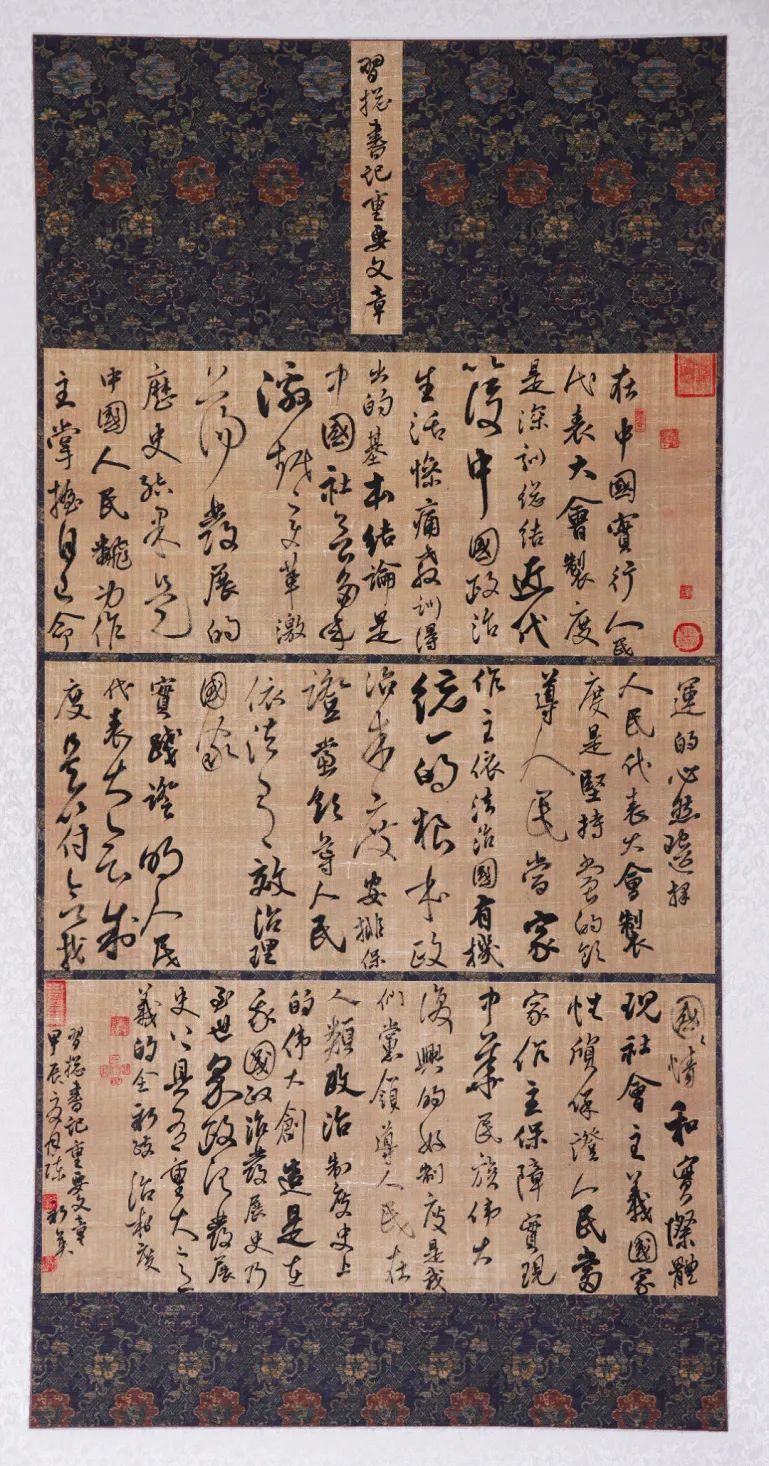 習揔書記重要文章
在中國實行人民
代表大會製度
是深刻揔結近代
以後中國政治
生活慘痛教訓得
出的基本結論是
中國社會百多年
激越變革激
蕩發展的
歷史結果是
中國人民翻身作
主掌握自己命
運的必然選擇
人民代表大會製
度是堅持黨的領
導人民當家
作主依法治國有機
統一的根本政
治制度安排保
證黨領導人民
依法有效治理
國家
實踐證明人民
代表大會制
度是符合我
國國情和實際體
現社會主義國家
性質保證人民當
家作主保障實現
中華民族偉大
復興的好制度是我
們黨領導人民在
人類政治制度史上
的偉大創造是在
我國政治發展史乃
至世界政治發展
史上具有重大意
義的全新政治制度
習揔書記重要文章
甲辰夏月陳